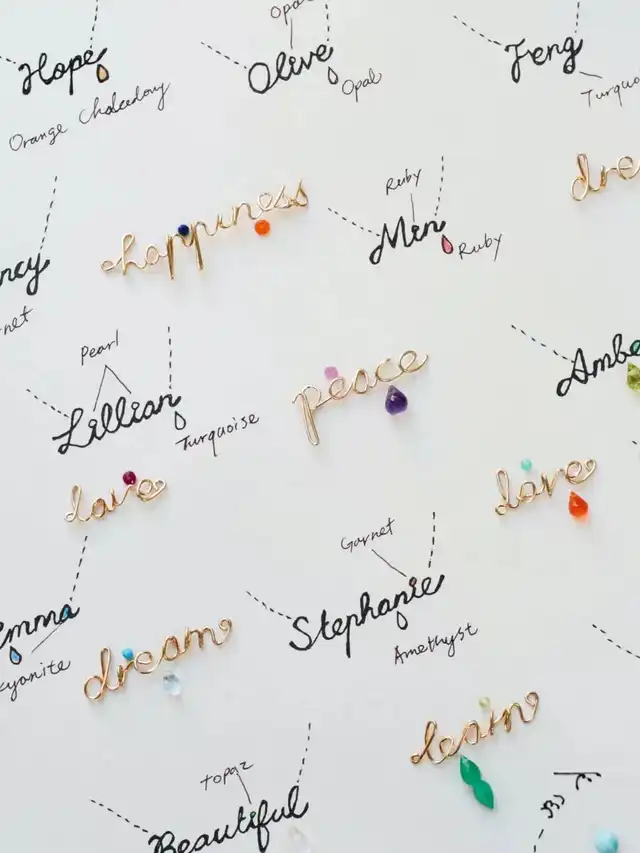 Opal
Hope
Orange Chalcedony
Olive
Opal
Feng
happiness
Ruby
Min
Ruby
Pearl
Lillian
Turquoise
peace
love
love
Garnet
Stephanie
Amethyst
Emma
kyanite
dream
learn
topaz
Beautiful